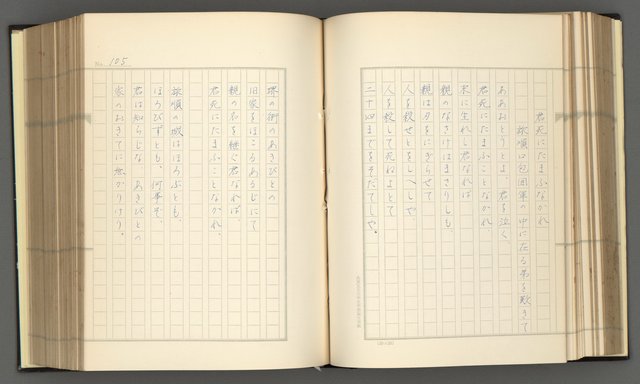 君死にたまふなかれ
旅順口包囲軍の中に在る弟を歎きて
ああおとうとよ、君を泣く、
君死にたまふことなかれ、
末に生れし君なれば
親のなさけはまさりしも、
親は刃をにぎらせて
人を殺せとをしへしや、
人を殺して死ねよとて
二十四までをそだてしや。
No. 105
堺の街のあきびとの
旧家をほこるあるじにて
親の名を継ぐ君なれば、
君死にたまふことなかれ、
旅順の城はほろぶとも、
ほろびずとも、何事ぞ、
君は知らじな、あきびとの
家のおきてに無かりけり。